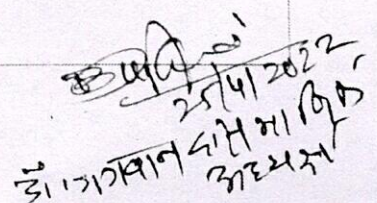 25/4/2022
डॉ. भगवान दास माणिक
अध्यक्ष